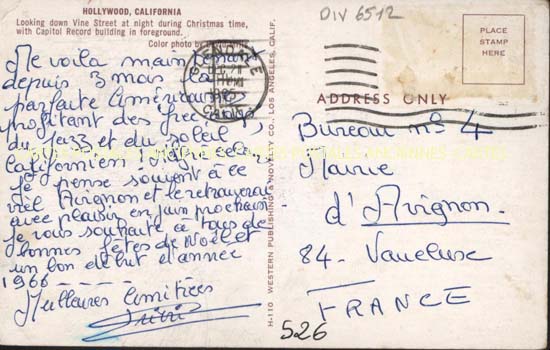 HOLLYWOOD, CALIFORNIA
Looking down Vine Street at night during Christmas time,
with Capitol Record building in foreground.
Color photo by
Me voilà maintenant
depuis 3 mois la
parfaite Américaine
profitant des free
du Jazz et du soleil
Californien! Malgré cela
je pense souvent à ce
vieil Avignon et le retrouverai
avec plaisir en juin prochain
je vous souhaite à tous de
bonnes fêtes de Noël et
un bon début d'année
1966
Meilleures Amitiées
H-110 WESTERN PUBLISHING & NOVELTY CO., LOS ANGELES, CALIF.
GLENDALE
CALIF
DIV 6512
PLACE
STAMP
HERE
ADDRESS ONLY
Bureau no 4
Mairie
d'Avignon.
84 - Vaucluse
FRANCE
526